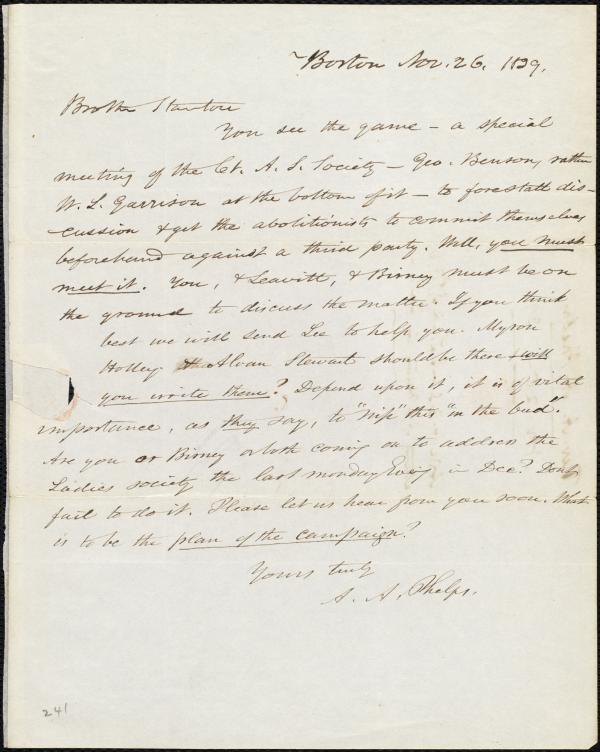 Boston Nov. 26. 1839.
Brother Stanton
You see the game – a special
meeting of the Ct. A. S. Society – Geo. Benson, rather
W. L. Garrison at the bottom of it – to forestall dis-
cussion & get the abolitionists to commit themselves
beforehand against a third party. Well, you must
meet it. You, & Leavitt, & Birney must be on
the ground to discuss the matter. If you think
best we will send Lee to help you. Myron
Holley, & Alvan Stewart should be there & will
you write them? Depend upon it, it is of vital
importance, as they say, to "nip" this "in the bud".
Are you or Birney or both coming on to address the
Ladies society the last monday Eveng in Dec? Dont
fail to do it. Please let us hear from you soon. What
is to be the plan of the campaign?
Yours truly
A. A. Phelps.
241